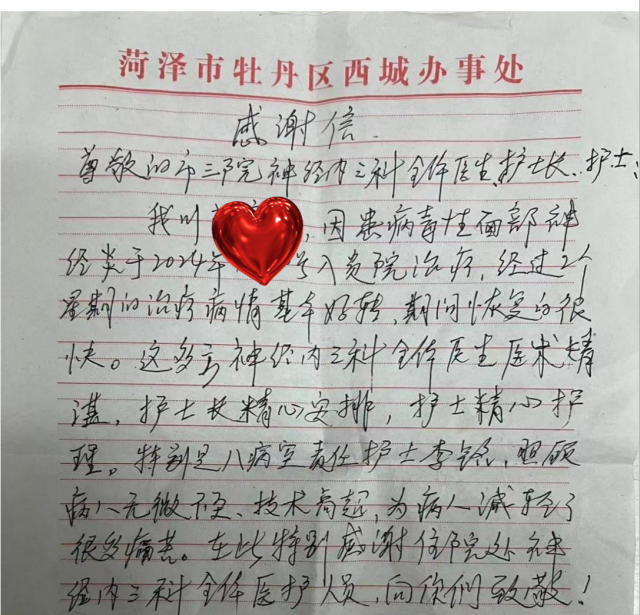 菏泽市牡丹区西城办事处
感谢信
尊敬的市三院神经内三科全体医生、护士长、护士:
我叫 ,因患病毒性面部神
经炎于2024年 号入贵院治疗,经过2个
星期的治疗病情基本好转,期间恢复的很
快。这多亏神经内三科全体医生医术精
湛,护士长精心安排,护士精心护
理。特别是八病室责任护士李 ,照顾
病人无微不至、技术高超,为病人减轻了
很多痛苦。在此特别感谢住院处神
经内三科全体医护人员,向你们致敬!